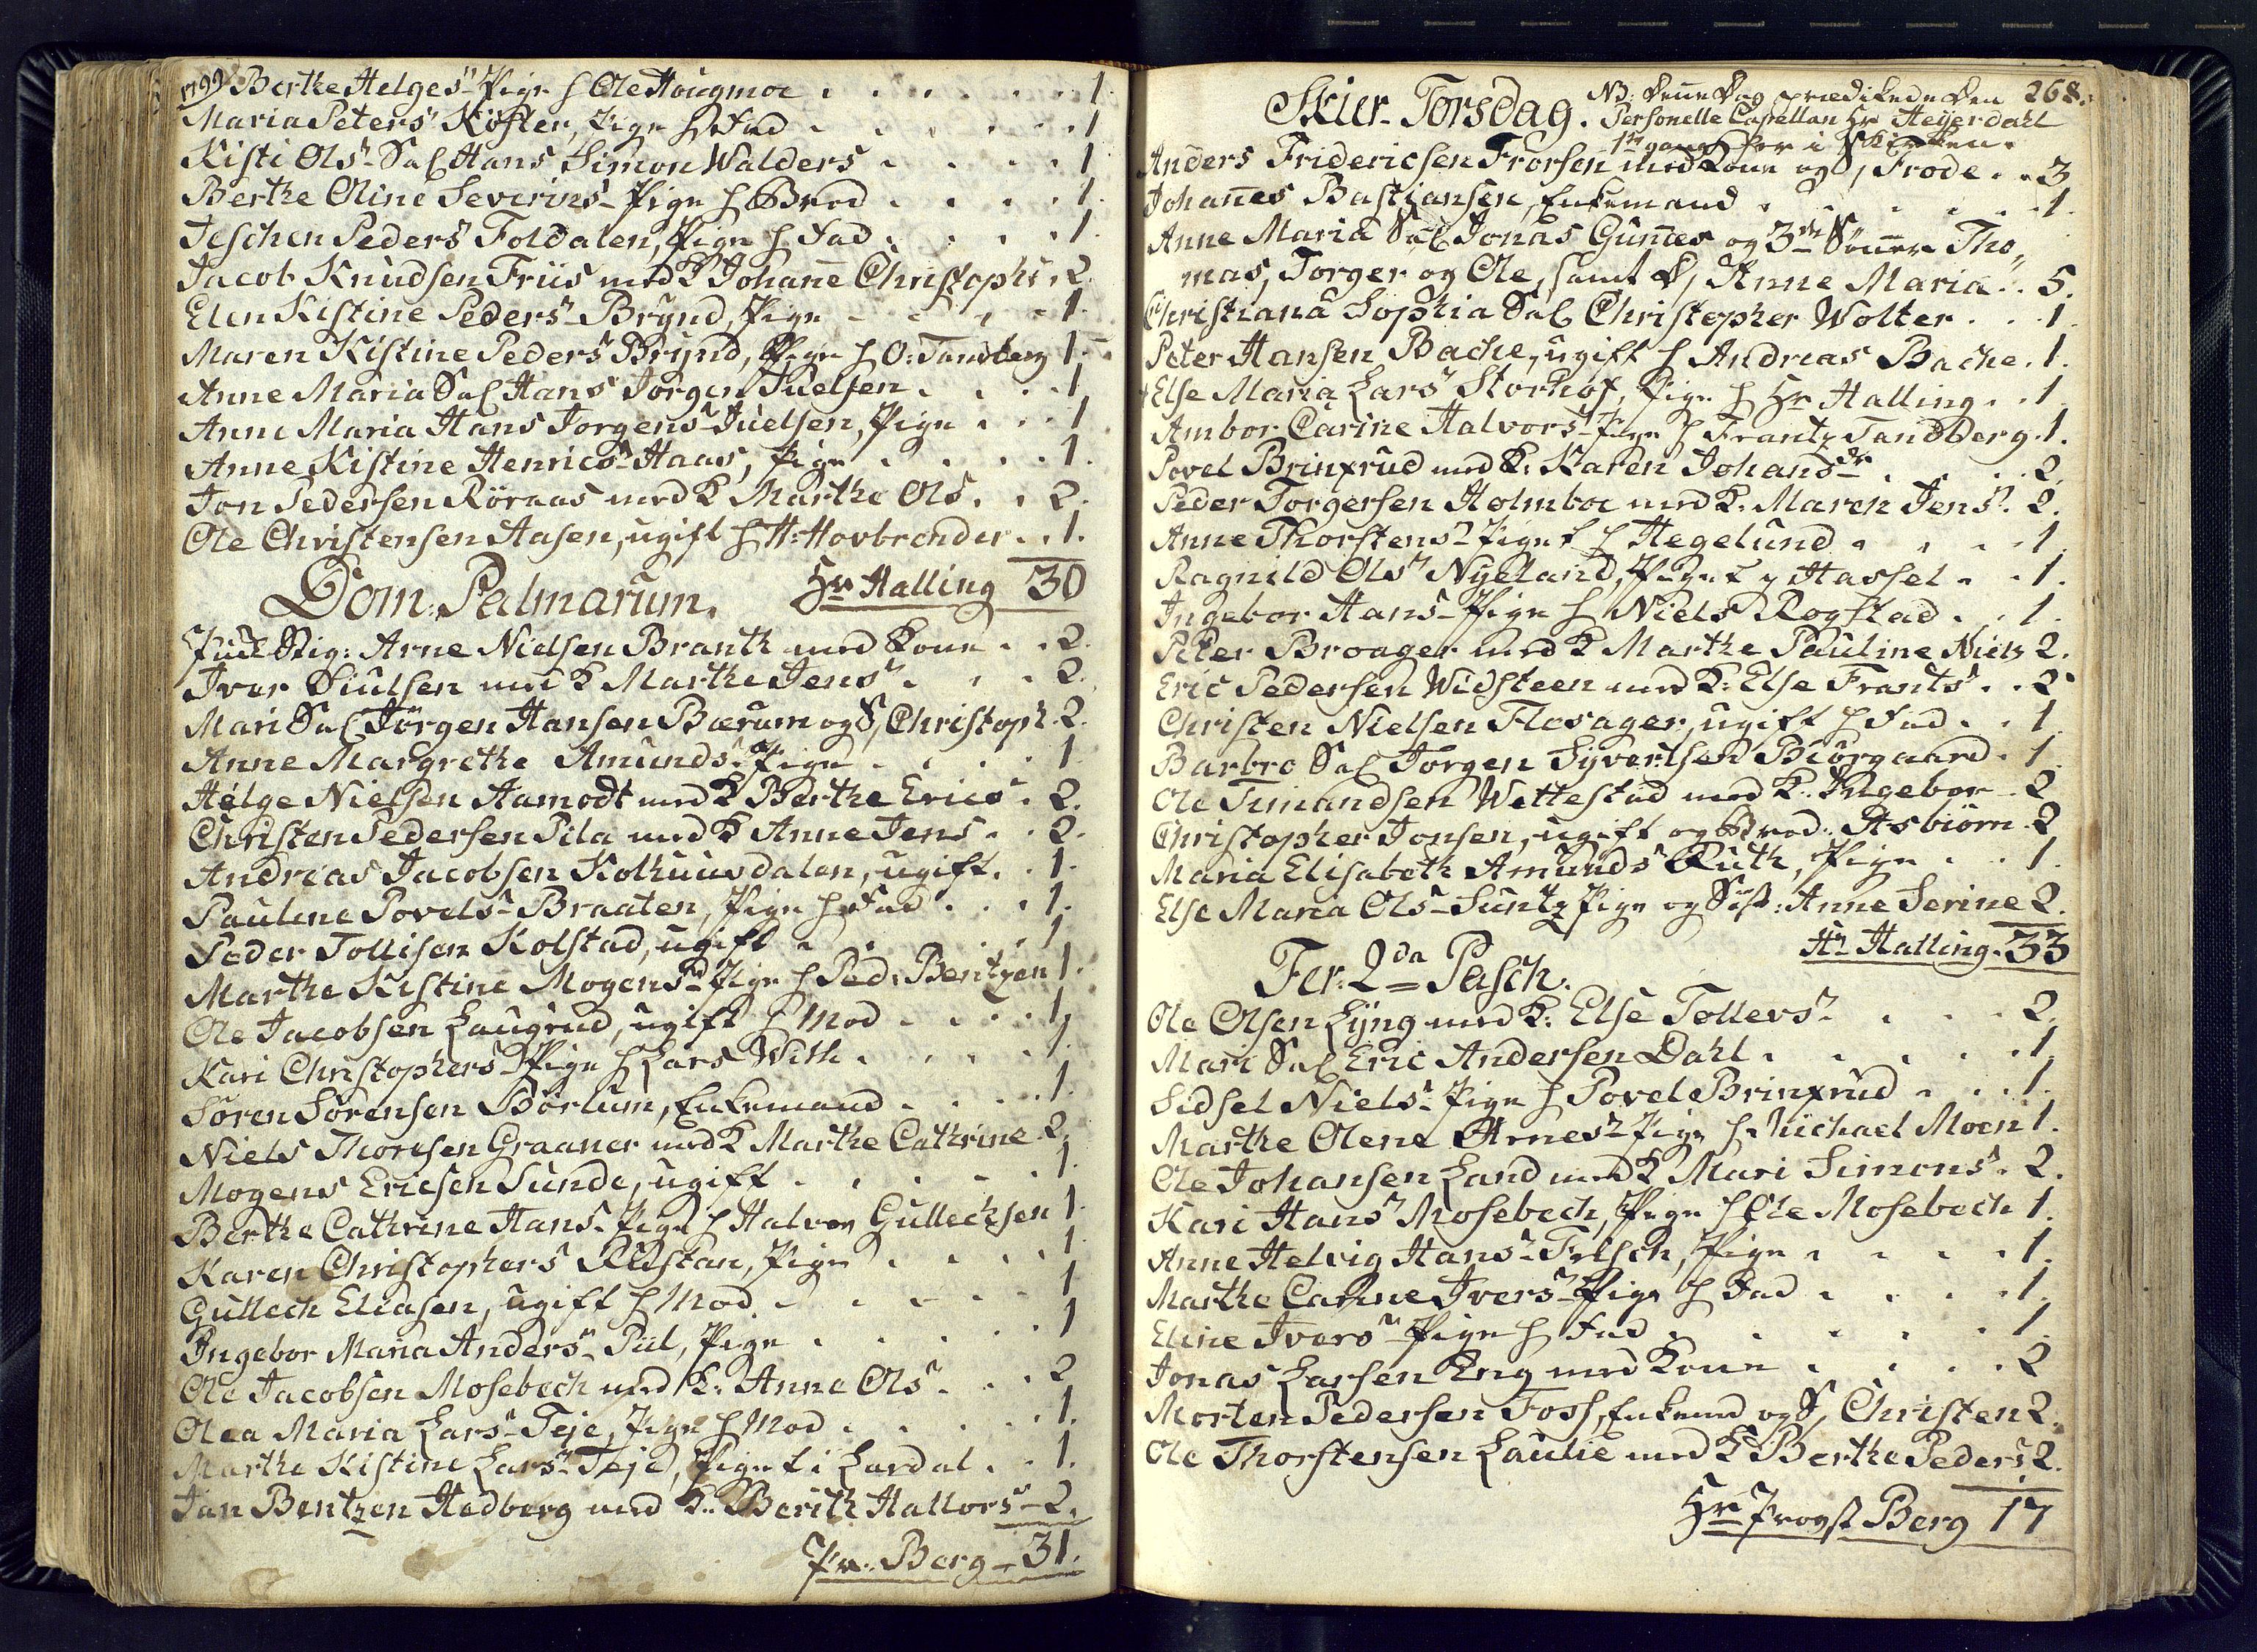 1799 Berthe Helges- Pige h Ole Hougmoe . . . . 1
Maria Peters Köster, Pige h Fad . . . . 1
Kisti Ols- Sal Hans Simon Walders . . . . 1
Berthe Oline Severins- Pige h Brod . . . . 1.
Jeschen Peders Foldalen, Pige h Fad . . . . 1.
Jacob Knudsen Friis med K Johane Christophs . 2.
Elen Kistine Peders- Brynd, Pige . . . 1.
Maren Kistine Peders Brynd, Pige h O: Tandberg 1.
Anne Maria Sal Hans Jörgen Juelsen . . . . 1
Anne Maria Hans Jorgens- Juelsen, Pige . . . 1
Anne Kistine Henrics- Haas, Pige . . . . 1.
Jon Pedersen Röraas med K Marthe Ols . . 2.
Ole Christensen Aasen, ugift h H: Hovbrender . . 1.
Dom: Palmarum. Hr Halling 30
Arne Nielsen Branth med Kone . . 2.
Iver Siulsen med K Marthe Jens . . . 2.
Mari Sal Jörgen Hansen Bærum og S, Christoph . 2.
Anne Margrethe Amunds- Pige . . . . 1
Helge Nielsen Aamodt med K Berthe Erics . 2.
Christen Pedersen Pila med K Anne Jens . . 2.
Andreas Jacobsen Kolhuusdalen, ugift . . 1.
Pauline Povels- Braaten, Pige h Fad . . . 1.
Peder Tollisen Kolstad, ugift . . . . 1
Marthe Kistine Mogens- Pige h Ped: Bentzen 1.
Ole Jacobsen Laugrud, ugift h Mod . . . . 1.
Kari Christophers- Pige h Lars With . . . . 1.
Sören Sörensen Börlum, Enkemand . . . . 1.
Niels Thoresen Graaner med K Marthe Cathrine . 2.
Mogens Ericsen Sunde, ugift . . . . 1.
Berthe Cathrine Hans- Pige h Halvor Gullechsen 1.
Karen Christophers Ristan, Pige . . . . 1
Gullech Eliasen, ugift h Mod . . . . 1
Ingebor Maria Anders- Piil, Pige . . . . 1
Ole Jacobsen Mosebech med K: Anne Ols . . . 2
Olea Maria Lars- Teje, Pige h Mod . . . . 1.
Marthe Kistine Lars- Teje, Pige t i Lardal . . 1.
Jan Bentzen Hedberg med K: Berith Hallvors- 2.
Pr: Berg - 31.
268.
Skier-Torsdag. NB: denne Dag prædikede den
Personelle Capellan Hr Heyerdahl
1ste gang her i Kirken.
Anders Fridericsen Frorsen med Kone og S, Frode . . 3
Johannes Bastiansen, Enkemand . . . . 1.
Anne Maria Sal Jonas Gunnes og 3de Sönner Tho,
mas, Torger og Ole, samt D, Anne Maria . . 5.
Christiana Sophia Sal Christopher Wolter . . . 1
Peter Hansen Bache, ugift h Andreas Bache . 1.
+ Else Maria Lars Storhof, Pige h Hr Halling . . 1
Ambor Carine Halvors- Pige h Frantz Tandberg . 1.
Povel Brinxrud med K. Karen Johansdr . . . 2.
Peder Torgersen Holmboe med K. Maren Jens . 2.
Anne Thorstens- Pige t h Hegelund . . . . 1.
Ragnild Ols Nyeland, Pige t y Hassel . . 1.
Ingebor Hans- Pige h Niels Rogstad . . 1.
Peter Broager med K Marthe Pauline Niels 2.
Eric Pedersen Widsteen med K. Else Frants . . 2
Christen Nielsen Flosager, ugift h Fad . . 1.
Barbro Sal Jorgen Syvertsen Biörgaard . 1.
Ole Simundsen Wettestad med K. Ingebor . 2
Christopher Jonsen, ugift og Brod: Asbiörn . 2
Maria Elisabeth Amunds Ruth, Pige . . . 1.
Else Maria Ols- Suntz Pige og Sist: Anne Serine 2.
Hr Halling . 33
Fer. 2da Pasch.
Ole Olsen Lyng med K: Else Tollevs- . . . 2.
Mari Sal Eric Andersen Dahl . . . . . 1.
Sidsel Niels- Pige h Povel Brinxrud . . . 1.
Marthe Olene Arnes- Pige h Michael Moen 1.
Ole Johansen Land med K Mari Simons . 2.
Kari Hans Mosebech, Pige h Ole Mosebech 1.
Anne Helvig Hans- Felsch, Pige . . . . 1.
Marthe Carine Ivers- Pige h Fad . . . . 1.
Eline Ivers- Pige h Fad . . . . . 1.
Jonas Larsen Eng med Kone . . . . 2
Morten Pedersen Foss, Enkemd og S, Christen 2.
Ole Thorstensen Laulie med K Berthe Peders 2.
Hr Provst Berg 17